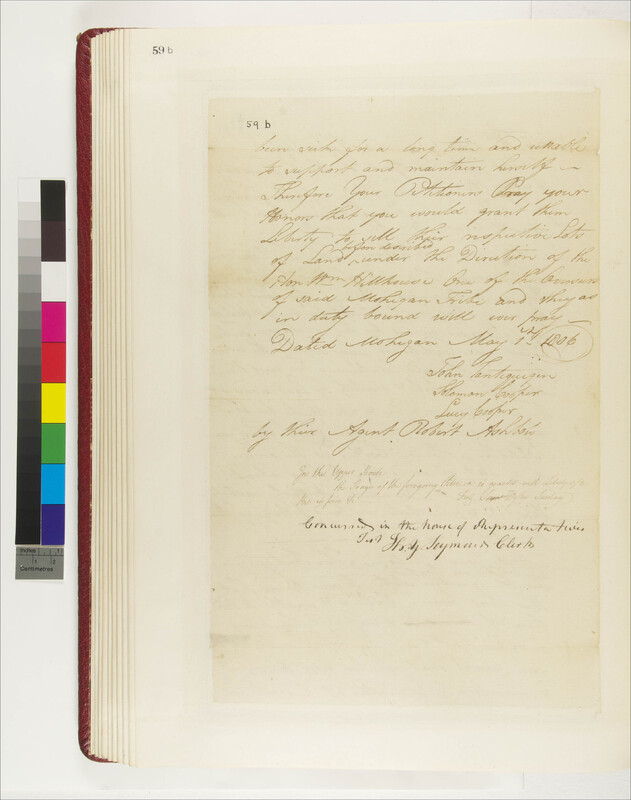 59 b
59 b
been sick for a long time and unable
to support and maintain himself –
Therefore Your Petitioners Pray your
Honors that you would grant them
Liberty to sell their respective Lots
before described
of Land under the Direction of the
Hon Wm Hillhouse One of the
of said Mohegan Tribe and they as
in duty bound will ever pray –
Dated Mohegan May 1st 1806
John Tantiquigen
Solomon Cooper
Lucy Cooper
by thier Agent Robert Ashbow
In the Upper House
the Prayer of the foregoing Petition is granted with Liberty of a
Bill in form &c
Concurred in the house of Representatives
Test H. Y. Seymour Clerk
Inches 1
Centimetres 1 2